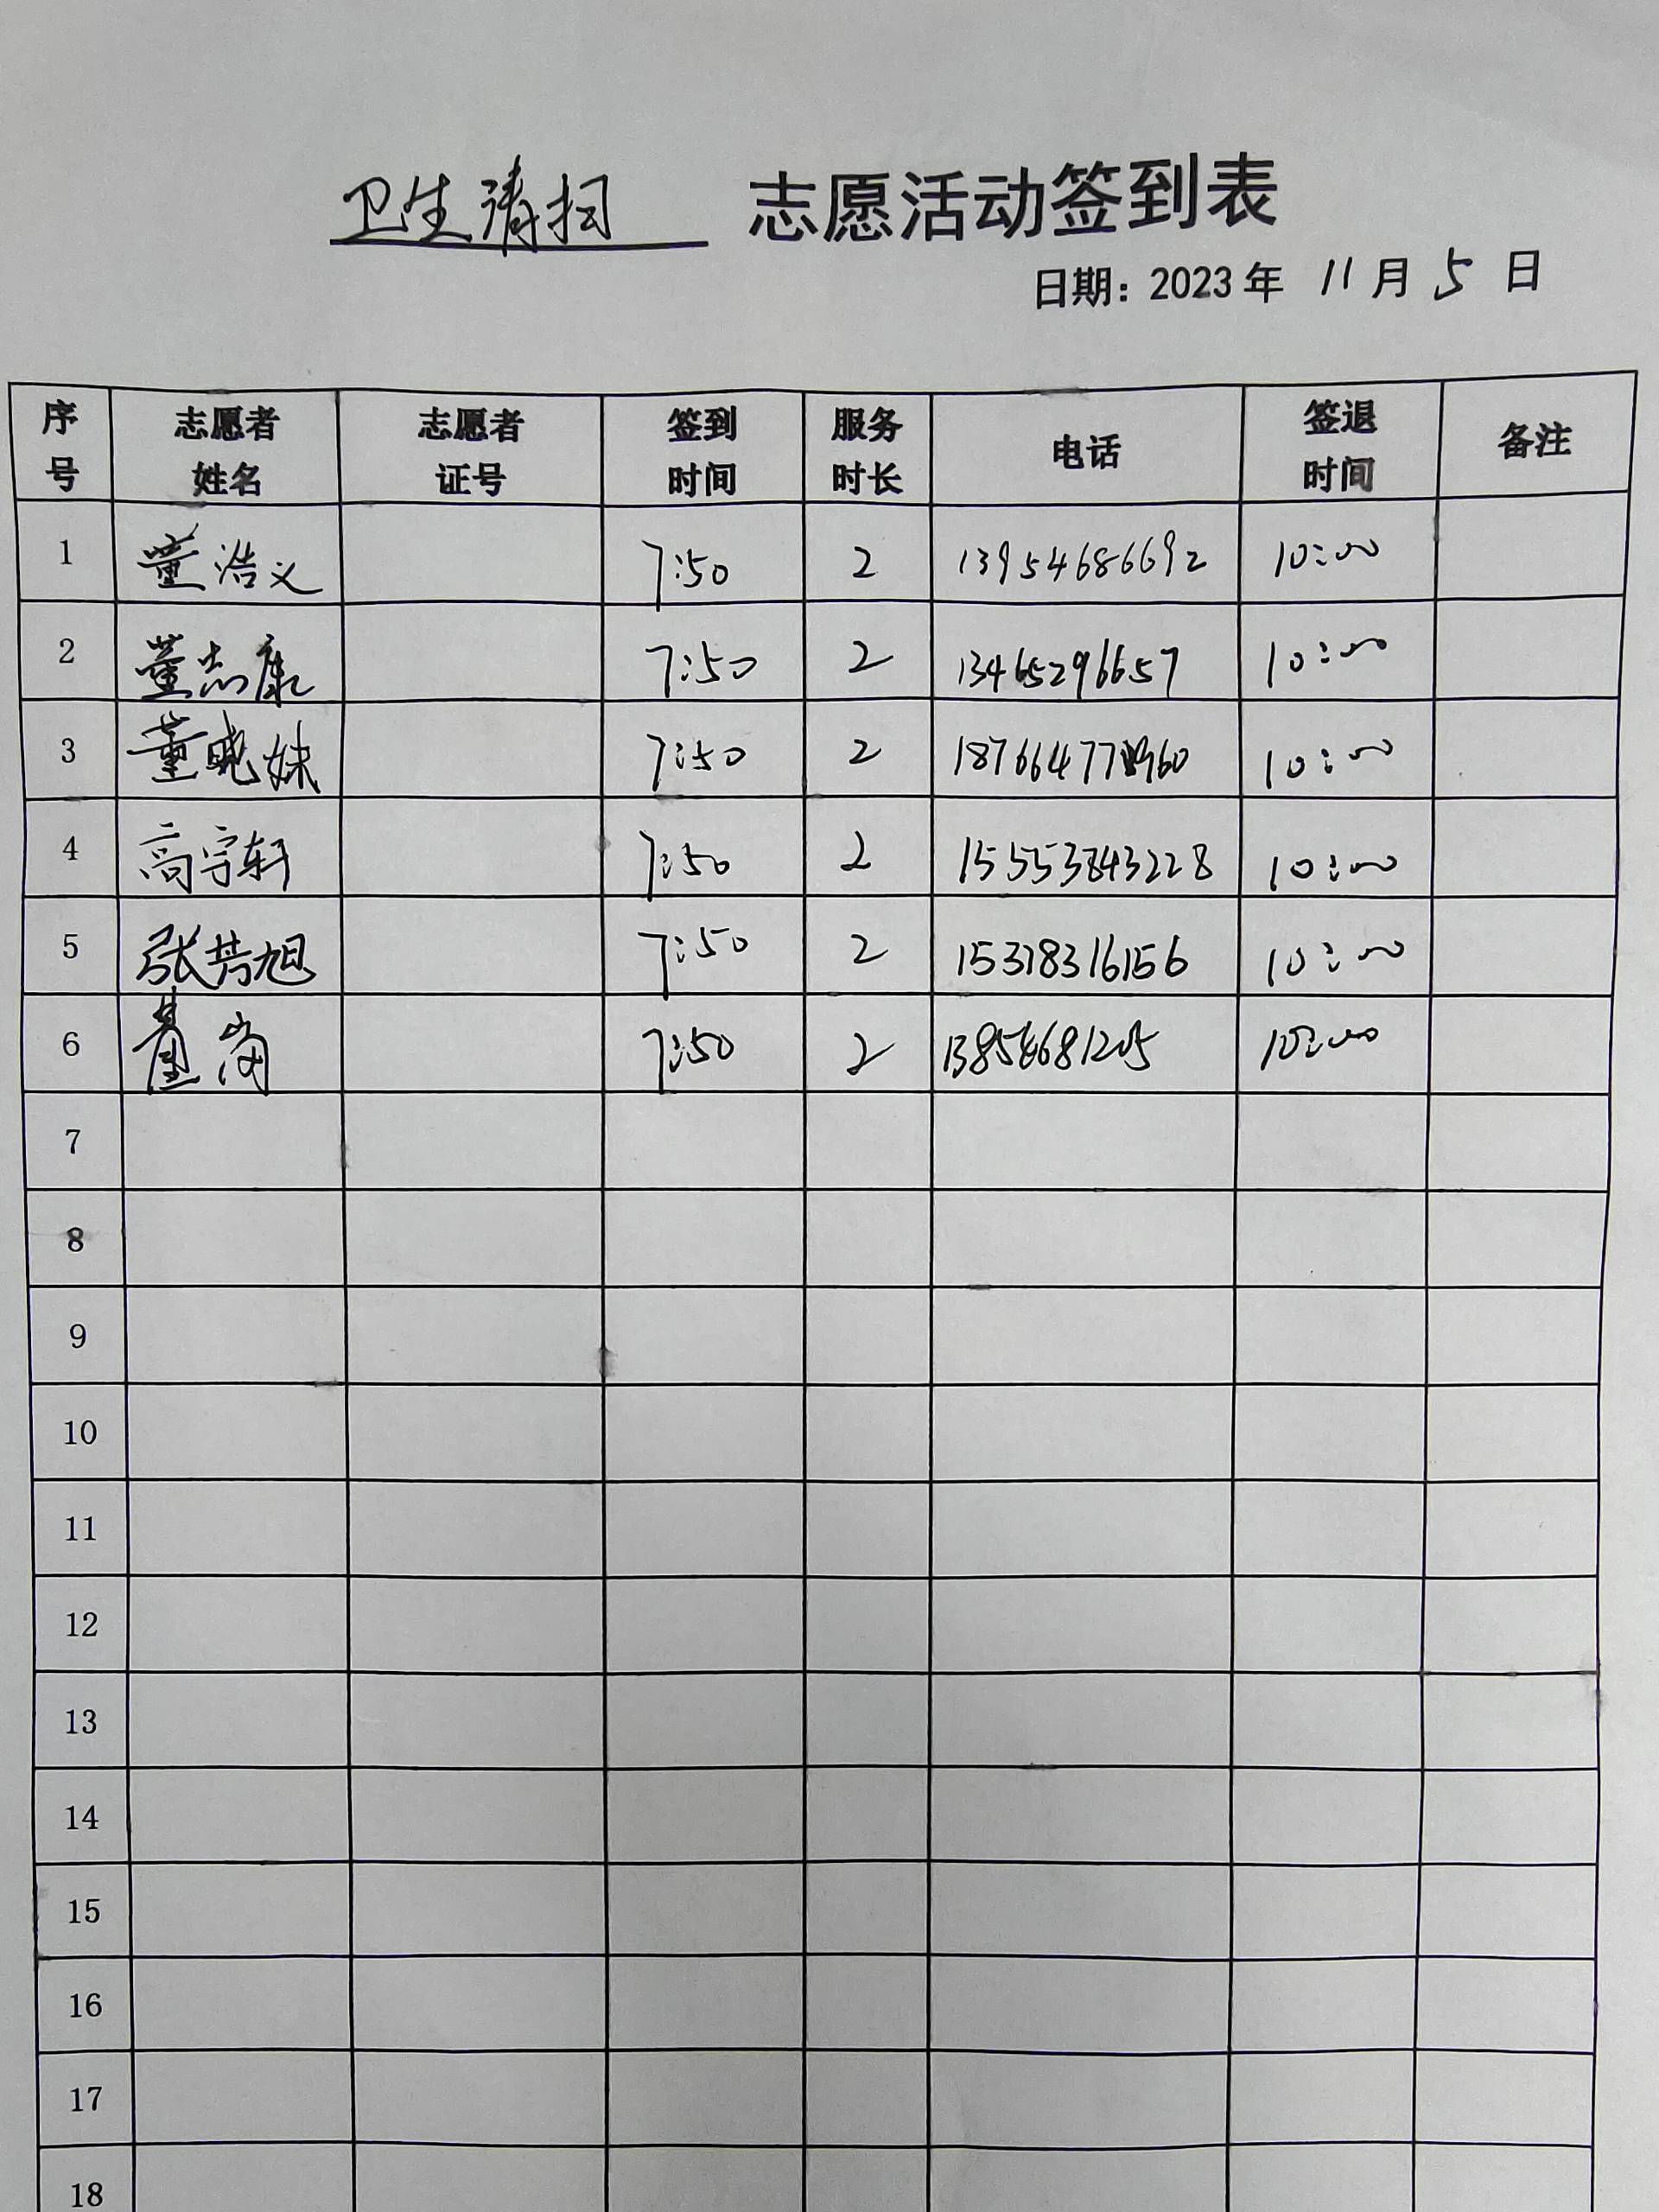 卫生清扫 志愿活动签到表
日期：2023年 11月 5 日
序号 志愿者姓名 志愿者证号 签到时间 服务时长 电话 签退时间 备注
1 董浩义 7:50 2 13954686692 10:00
2 董志康 7:50 2 13465296657 10:00
3 董晓妹 7:50 2 10:00
4 高宇轩 7:50 2 15553843228 10:00
5 张芳旭 7:50 2 15318316156 10:00
6 董岗 7:50 2 10:00
7
8
9
10
11
12
13
14
15
16
17
18